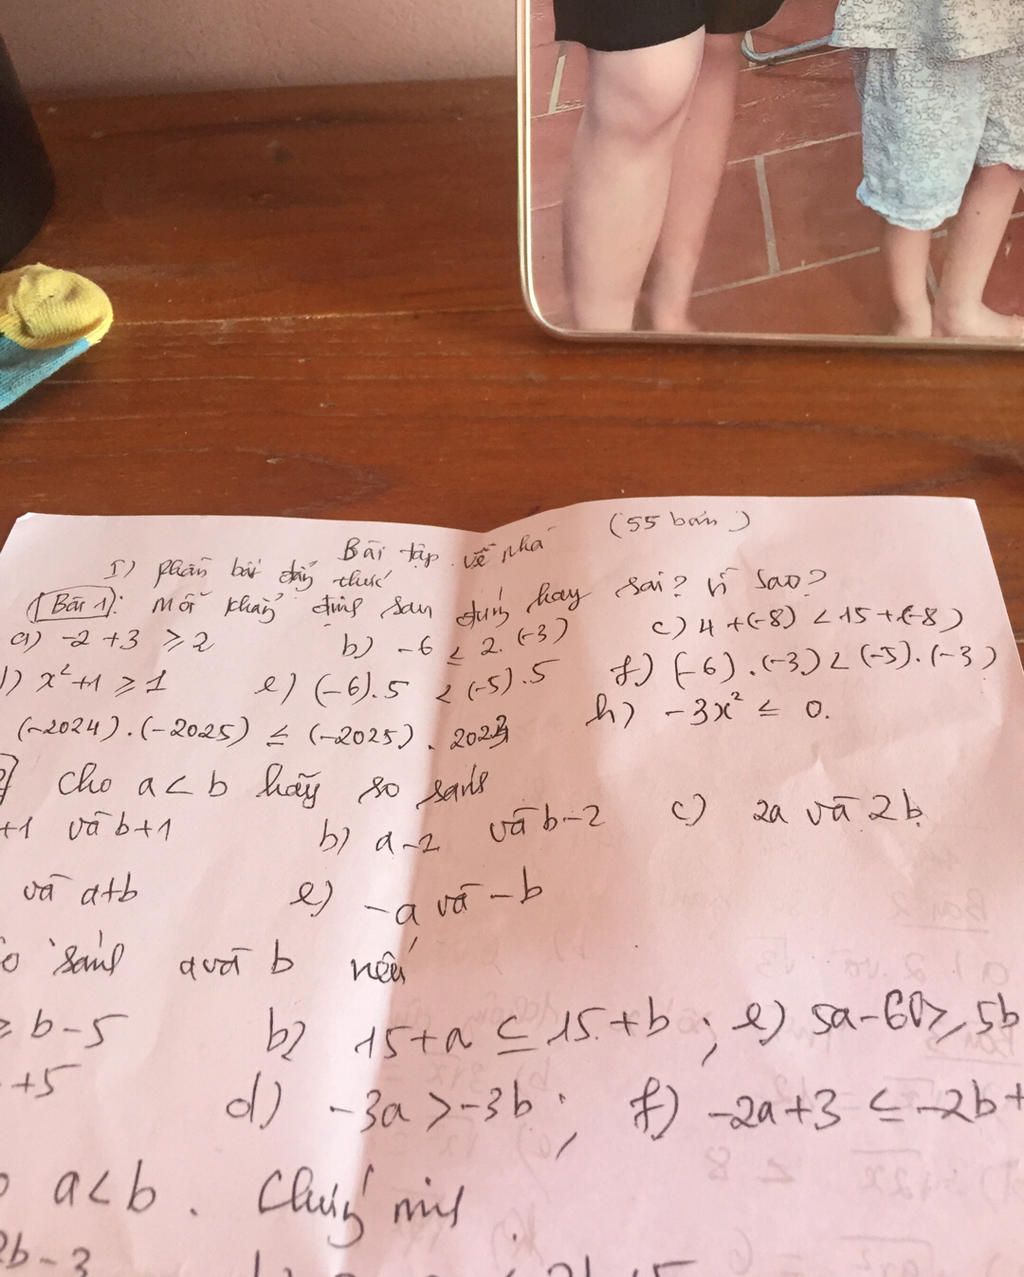 Bài tập về nhà (55 bản)
I) phần bất đẳng thức
Bài 1: Mỗi khẳng định sau đúng hay sai? Vì sao?
a) -2 + 3 ≥ 2 b) -6 ≤ 2.(-3) c) 4 + (-8) < 15 + (-8)
d) x² + 1 ≥ 1 e) (-6).5 < (-5).5 f) (-6).(-3) < (-5).(-3)
(-2024).(-2025) ≤ (-2025).2023 h) -3x² ≤ 0.
Cho a < b hãy so sánh
+1 và b+1 b) a-2 và b-2 c) 2a và 2b.
và a+b e) -a và -b
sánh a và b nếu
≥ b-5 b) 15+a ≤ 15+b ; e) 5a-60 ≥ 5b
+5 d) -3a > -3b ; f) -2a+3 ≤ -2b+
a < b. Chứng minh
2b-3